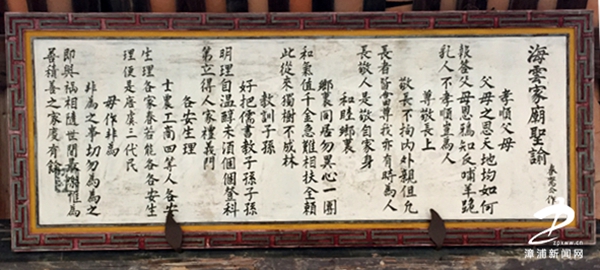 海雲家廟聖諭
公作
孝順父母
父母之恩天地均如何
報答父母恩鴉知反哺羊跪
乳人不孝順豈為人
尊敬長上
敬長不拘內外親但凡
長者皆當尊我亦有時為人
長敬人是敬自家身
和睦鄉裏
鄉裏同居勿異心一團
和氣值千金急難相扶全賴
此從來獨樹不成林
教訓子孫
好把儒書教子孫子孫
明理自溫醇未須個個登科
第立得人家禮義門
各安生理
士農工商四等人各安
生理各家春若能各各安生
理便是唐虞三代民
毋作非為
非為之事切勿為為之
即與禍相隨世間最樂惟為
善積善之家慶有餘
漳浦新闻网